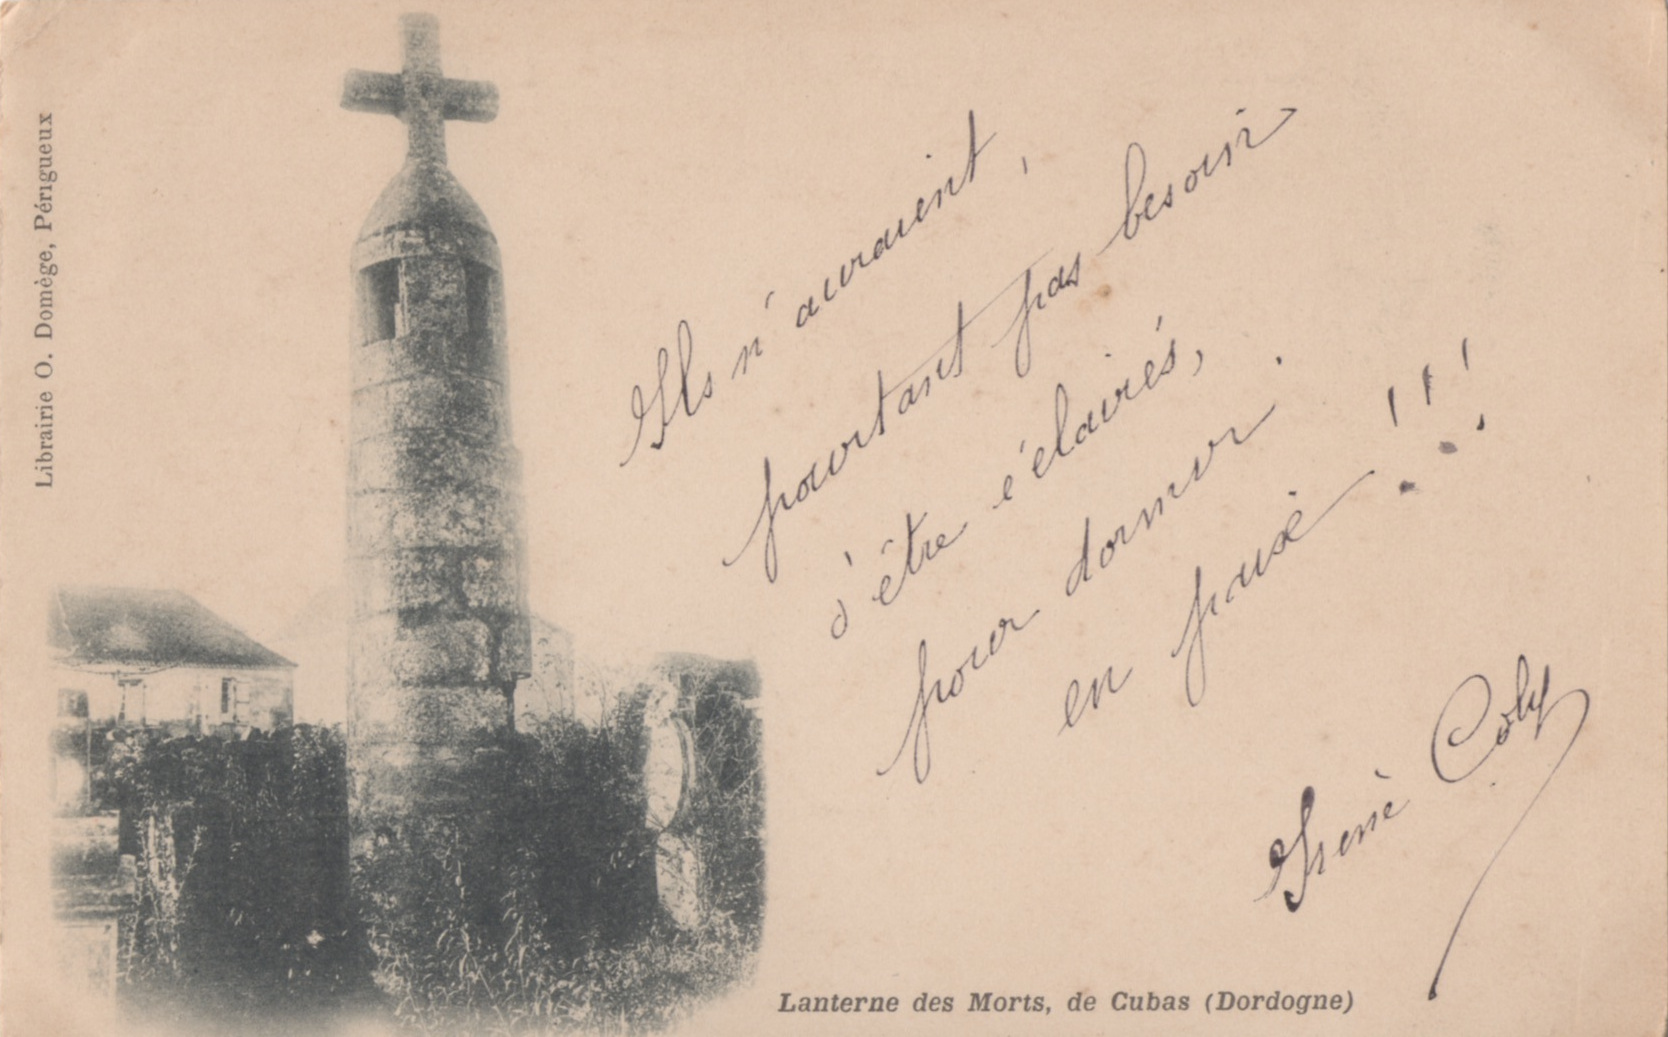 Librairie O. Domège, Périgueux
Ils n'auraient,
pourtant pas besoin
d'être éclairés,
pour dormir.
en paix!!!
Coly
Lanterne des Morts, de Cubas (Dordogne)